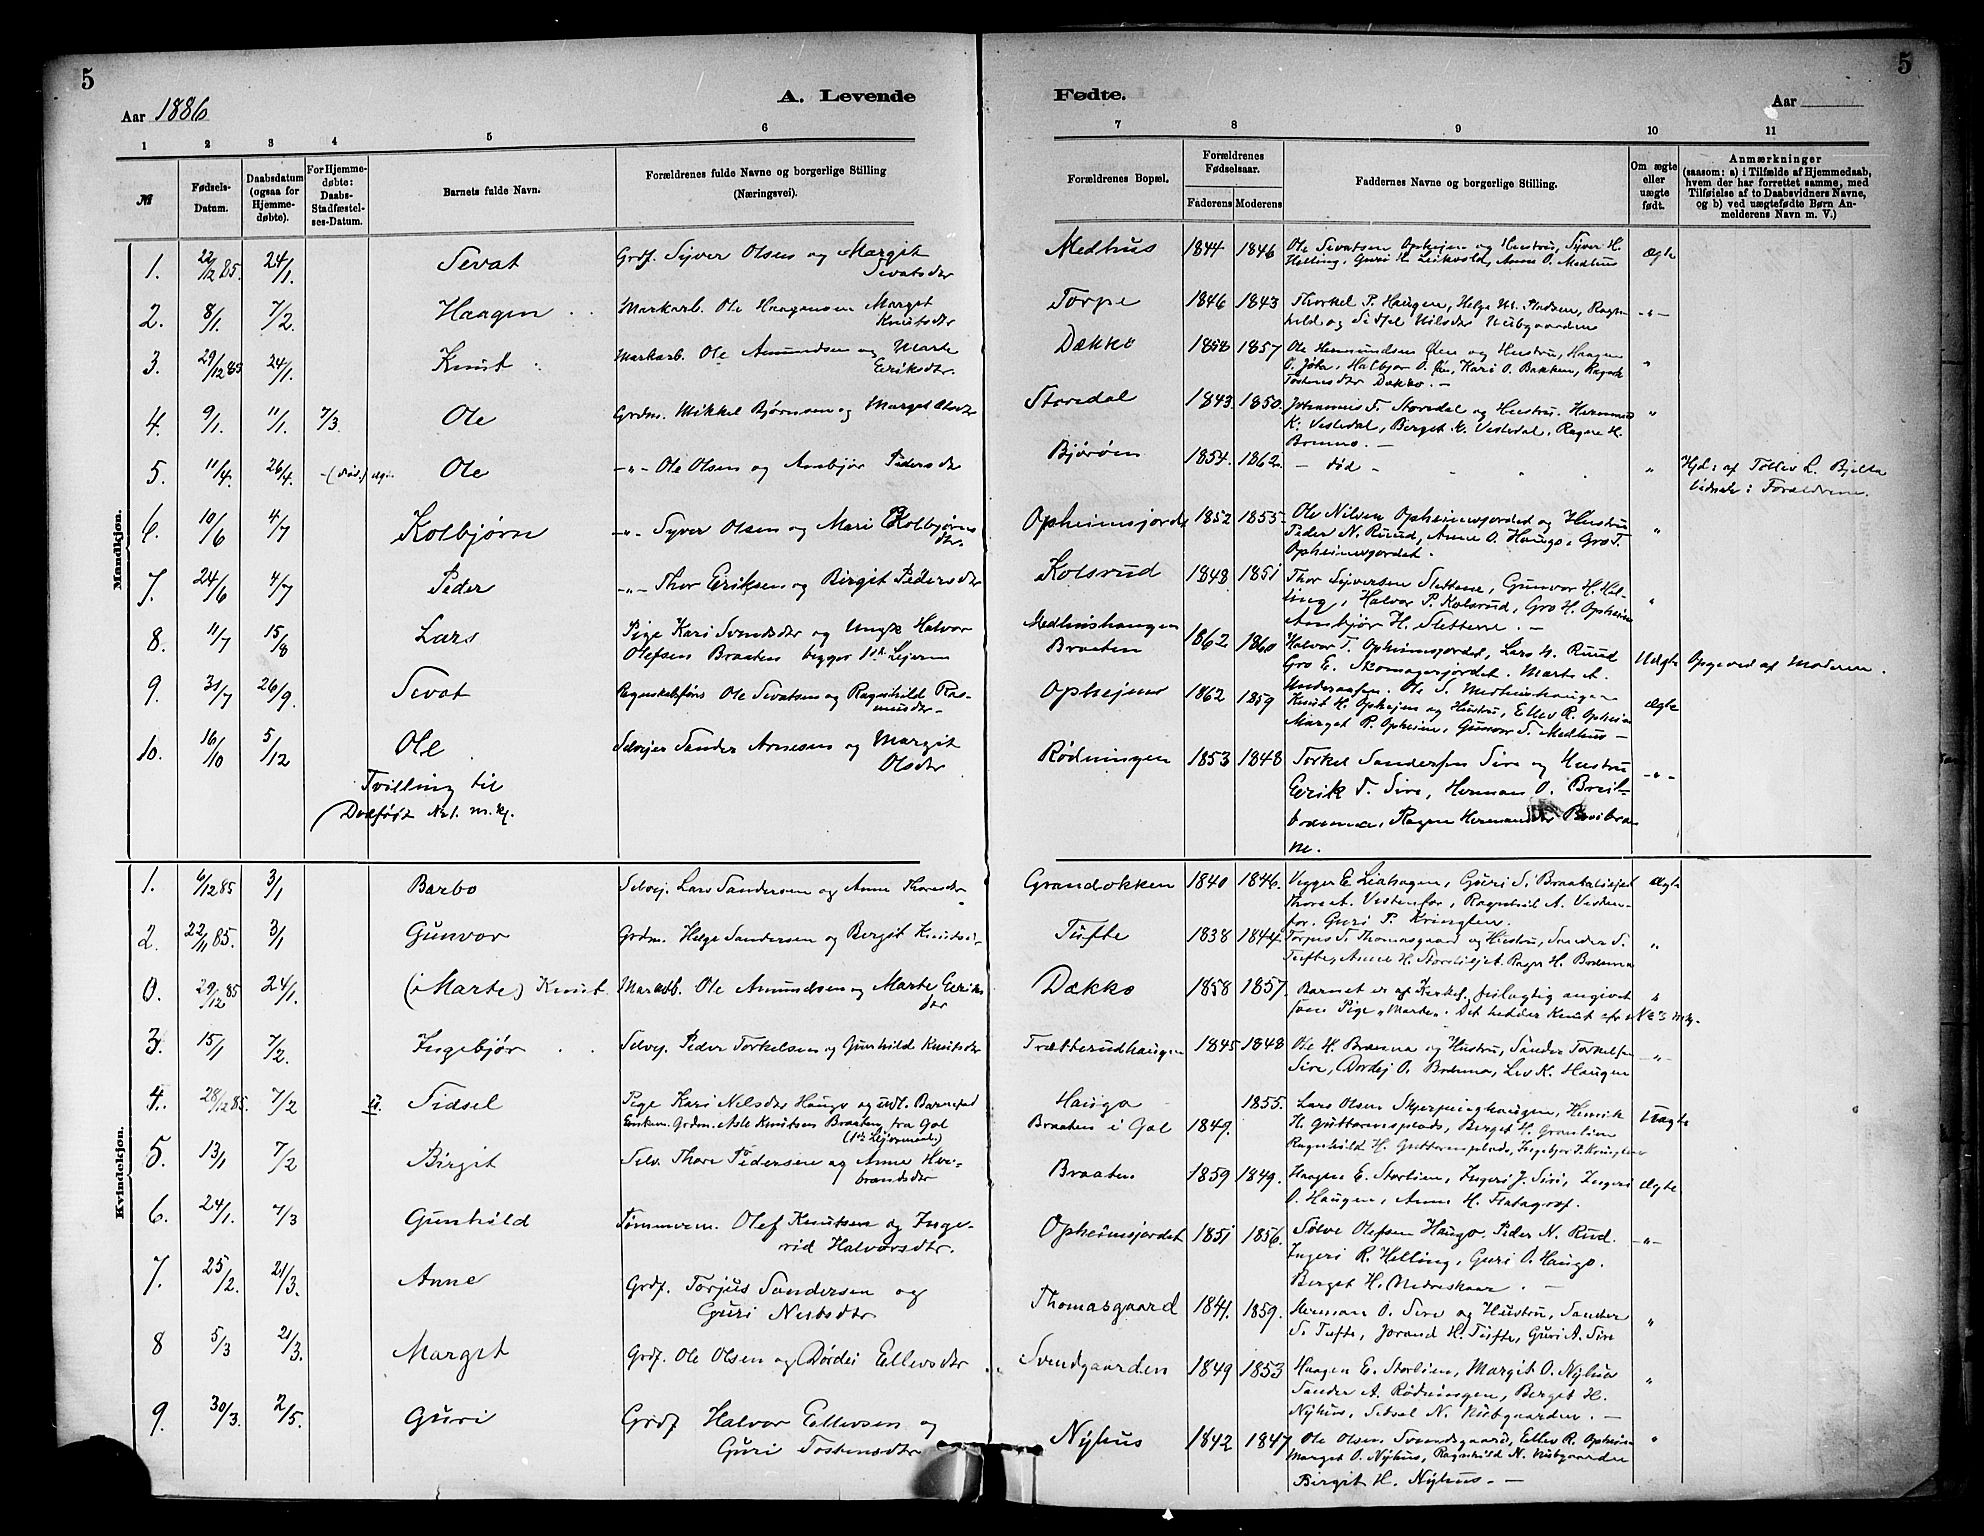 5
5
Aar 1886
A. Levende
Fødte.
Aar
1 2 3 4 5 6 7 8 9 10 11
№
Fødsels-
Datum.
Daabsdatum
(ogsaa for
Hjemme-
døbte).
For Hjemme-
døbte:
Daabs-
Stadfæstel-
ses-Datum.
Barnets fulde Navn.
Forældrenes fulde Navne og borgerlige Stilling
(Næringsvei).
Forældrenes Bopæl.
Forældrenes
Fødselsaar.
Faderens Moderens
Faddernes Navne og borgerlige Stilling.
Om ægte
eller
uægte
født.
Anmærkninger
(saasom: a) i Tilfælde af Hjemmedaab,
hvem der har forrettet samme, med
Tilføielse af to Daabsvidners Navne,
og b) ved uægtefødte Børn An-
melderens Navn m. V.)
Mandkjøn.
1. 22/12 85. 24/1. Sevat Grdf. Syver Olsen og Margit
Sevatsdtr Medhus 1844 1846 Ole Sevatsen Ophejm og Hustru, Syver H.
Helling, Guri H. Leikvold, Anne O. Medhus Ægte
2. 8/1. 7/2. Haagen Markarb. Ole Haagensen Marget
Knutsdtr Torpe 1846 1843 Thorkel P. Haugen, Helge M. Pladsen, Ragn-
hild og Sidsel Nilsdtr Nubgaarden -"-
3. 29/12 85 24/1. Knut Markarb. Ole Amundsen og Marte
Eriksdtr. Dækko 1858 1857 Ole Hermundsen Øen og Hustru, Haagen
O. , Halbjør O. , Kari O. Bakken,
Tostensdtr Dækko. - "
4. 9/1. 11/1. 7/3. Ole Grdm. Mikkel Bjørnsen og Marget Olsdtr Storedal 1843 1850. Johannes T. Storedal og Hustru. Hermund
K. Vestedal, Berget K. Vestedal, Ragne H.
Bromo. - "
5. 11/4. 26/4. -(død.) Ole -"- Ole Olsen og Asbjør Pedersdtr Bjørøen 1854. 1862. - død - " Hjd: af Tollev L. Bjella
Vidner: Forældrene.
6. 10/6 4/7 Kolbjørn -"- Syver Olsen og Mari Kolbjørns
dtr. Opheimsjordet 1852 1855. Ole Nilsen Opheimsjordet og Hustru
Peder N. Ruud, Anne O. Haugo, Gro T.
Opheimsjordet. "
7. 24/6 4/7 Peder -"- Thor Eriksen og Birgit Pedersdtr Kolsrud 1848 1851 Thor Syversen Slettene, Gunvor H. Hel-
ling, Halvor P. Kolsrud, Gro H. Opheim
Asbjør H. Slettene. - "
8. 11/7 15/8 Lars Pige Kari Svendsdtr og Ungk Halvor
Olefsen Braaten begges 1ste Lejerm Medhushaugen
Braaten 1862 1860 Halvor T. Opheimsjordet, Lars N. Ruud
Gro E. Skomagerjordet. Marte A.
Underaasen. Ole S. Medhushaugen Uægte Opgeved af Moderen.
9. 31/7 26/9. Sevat Regnskabsførs Ole Sevatsen og Ragnhild Ras-
musdtr - Ophejms 1862 1859 Knut H. Ophejm og Hustru, Ellev R. Opheim
Marget P. Opheim, Gunvor S. Medhus - ægte
10. 16/10 5/12 Ole Selvejer Sander Arnesen og Margit
Olsdtr Rødningen 1853 1848 Torkel Sandersen Sire og Hustru
Eerik T. Sire, Herman O. Breie-
, Ragne Hermansdtr Breibra
ne. -"-
Tvilling til
Dødfødt № 1. m. kj.
Kvindekjøn.
1. 6/12 85 3/1 Barbo Selvej. Lars Sandersen og Anne Thoresdtr Grandokken 1840 1846. Vegger E. Liahagen, Guri S. Braataliejet
Thore A. Vestenfor, Ragnhild A. Vesten-
for. Guri P. Kringlen. Ægte
2. 22/11 85. 3/1 Gunvor Grdm. Helge Sandersen og Bergit Knuts Tufte 1838 1844. Torjus S. Thomasgaard og Hustru, Sander S.
Tufte, Anne H. Stordiljet. Ragne H. Brænna "
0. 29/12 85 24/1. (i Marte) Knut Markarb. Ole Amundsen og Marte Eeriks
dtr Dækko 1858 1857. Barnet er af Kirkes. feilagtig angivet
som Pige "Marte". Det hedder Knut № 3 m. kj. "
3. 15/1 7/2. Ingebjør Selvej. Peder Torkelsen og Gunhilde Knutsdtr Trætterudhaugen 1845 1848 Ole H. Brænna og Hustru, Sander Torkelsen
Sire, Dordej O. Brænna, Liv K. Haugen -"-
4. 28/12 85. 7/2 u. Sidsel Pige Kari Nilsdtr Haugo og udl. Barnefad
Enkem. Grdm. Asle Knutsen Braaten fra Gol
(1ste Lejermaal) Haugo
Braaten i Gol 1849. 1855. Lars Olsen Skjerpinghaugen, Henrik
H. Guttormsplads, Berget H. Granlien
Ragnhild H. Guttormsplads, Ingebjør P. Kringlen Uægte
5. 13/1 7/2 Birgit Selv. Thore Pedersen og Anne Hvi-
brandsdtr Braaten 1859 1849. Haagen E. Storlien, Ingeri J. Siri, Ingeri
O. Haugen, Anne H. Flatagraf. Ægte
6. 24/1. 7/3 Gunhild Tømmerm. Olef Knutsen og Inge-
rid Halvorsdtr. Opheimsjordet 1851 1856. Sølve Olefsen Haugo. Peder N. Rud.
Ingeri R. Helling, Guri O. Haugo.
Berget H. Medreskaar. - -"-
7. 25/2. 21/3. Anne Grdf. Torjus Sandersen og
Guri Nubsdtr Thomasgaard 1841. 1859. Herman O. Sire og Hustru, Sander
S. Tufte, Jorand H. Tufte, Guri A. Sire "
8 5/3 21/3. Margit Grdf. Ole Olsen og Dordei Ellevsdtr Svendgaarden 1849 1853 Haagen E. Storlien, Margit O. Nyhus
Sander A. Rødningen, Berget H.
Nyhus, Sidsel N. Nubgaarden. - "
9. 30/3. 2/5. Guri Grdf Halvor Eellevsen og
Guri Tostensdtr Nyhus 1842 1847 Ole Olsen Svendsgaard, Eellev R. Opheim
Marget O. Nyhus, Ragnhild N. Nubgaarden
Birgit H. Nyhus. - "